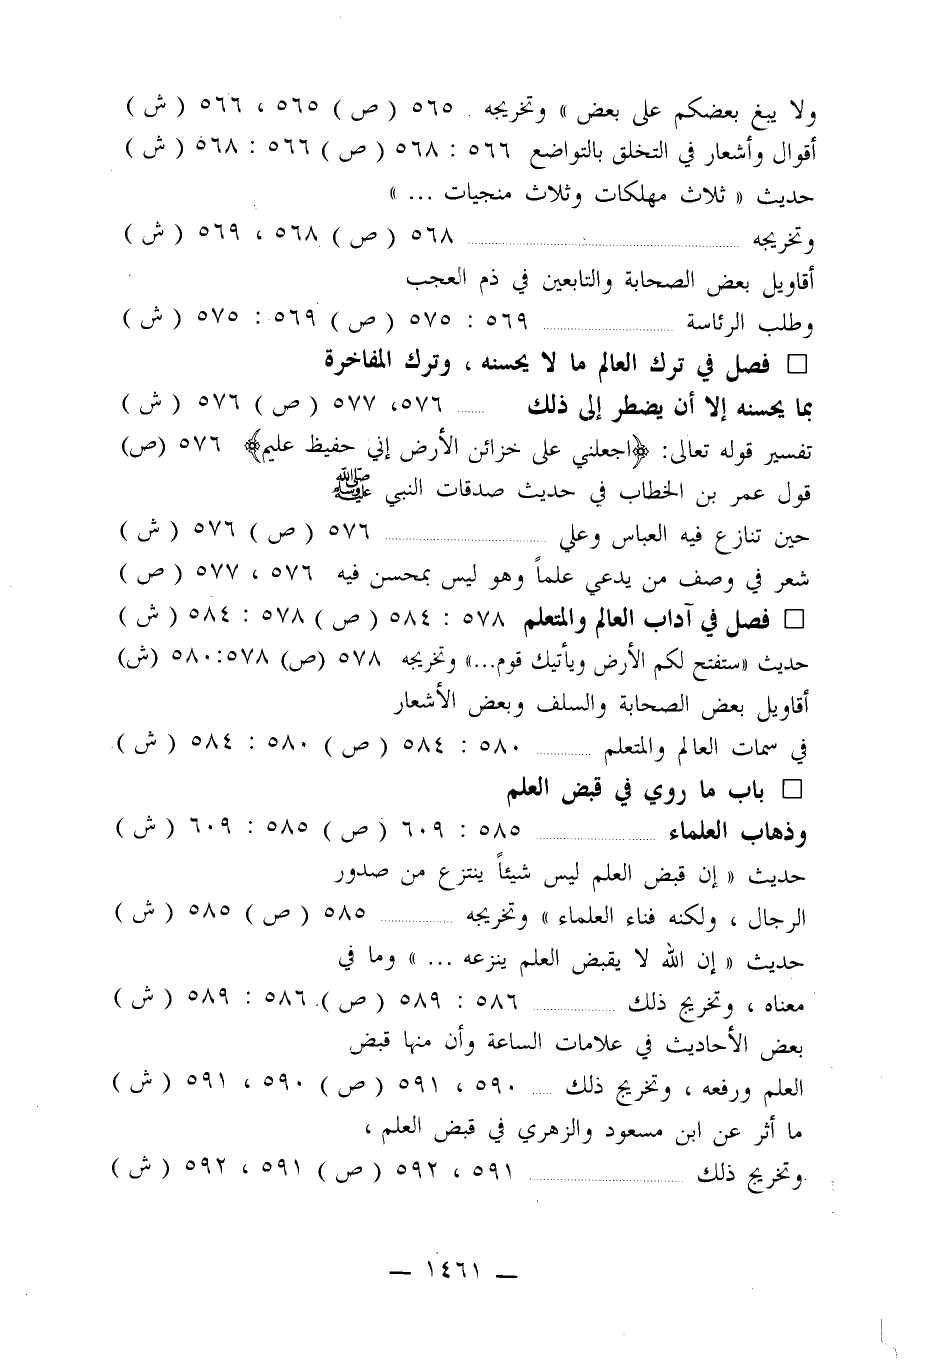 ولا يبغ بعضكم على بعض » وتخريجه . ٥٦٥ ( ص ) ٥٦٥ ، ٥٦٦ ( ش )
أقوال وأشعار في التخلق بالتواضع ٥٦٦ : ٥٦٨ ( ص ) ٥٦٦ : ٥٦٨ ( ش )
حديث « ثلاث مهلكات وثلاث منجيات ... »
وتخريجه ........ ٥٦٨ ( ص ) ٥٦٨ ، ٥٦٩ ( ش )
أقاويل بعض الصحابة والتابعين في ذم العجب
وطلب الرئاسة ........ ٥٦٩ : ٥٧٥ ( ص ) ٥٦٩ : ٥٧٥ ( ش )
□ فصل في ترك العالم ما لا يحسنه ، وترك المفاخرة
بما يحسنه إلا أن يضطر إلى ذلك ..... ٥٧٦، ٥٧٧ ( ص ) ٥٧٦ ( ش )
تفسير قوله تعالى: ﴿اجعلني على خزائن الأرض إني حفيظ عليم﴾ ٥٧٦ (ص)
قول عمر بن الخطاب في حديث صدقات النبي ﷺ
حين تنازع فيه العباس وعلي ........ ٥٧٦ ( ص ) ٥٧٦ ( ش )
شعر في وصف من يدعي علماً وهو ليس بمحسن فيه ٥٧٦ ، ٥٧٧ ( ص )
□ فصل في آداب العالم والمتعلم ٥٧٨ : ٥٨٤ ( ص ) ٥٧٨ : ٥٨٤ ( ش )
حديث «ستفتح لكم الأرض ويأتيك قوم...» وتخريجه ٥٧٨ (ص) ٥٧٨:٥٨٠ (ش)
أقاويل بعض الصحابة والسلف وبعض الأشعار
في سمات العالم والمتعلم ........ ٥٨٠ : ٥٨٤ ( ص ) ٥٨٠ : ٥٨٤ ( ش )
□ باب ما روي في قبض العلم
وذهاب العلماء ........ ٥٨٥ : ٦٠٩ ( ص ) ٥٨٥ : ٦٠٩ ( ش )
حديث « إن قبض العلم ليس شيئاً ينتزع من صدور
الرجال ، ولكنه فناء العلماء » وتخريجه ........ ٥٨٥ ( ص ) ٥٨٥ ( ش )
حديث « إن الله لا يقبض العلم ينزعه ... » وما في
معناه ، وتخريج ذلك ........ ٥٨٦ : ٥٨٩ ( ص ) ٥٨٦ : ٥٨٩ ( ش )
بعض الأحاديث في علامات الساعة وأن منها قبض
العلم ورفعه ، وتخريج ذلك ..... ٥٩٠ ، ٥٩١ ( ص ) ٥٩٠ ، ٥٩١ ( ش )
ما أثر عن ابن مسعود والزهري في قبض العلم ،
وتخريج ذلك ........ ٥٩١ ، ٥٩٢ ( ص ) ٥٩١ ، ٥٩٢ ( ش )
— ١٤٦١ —